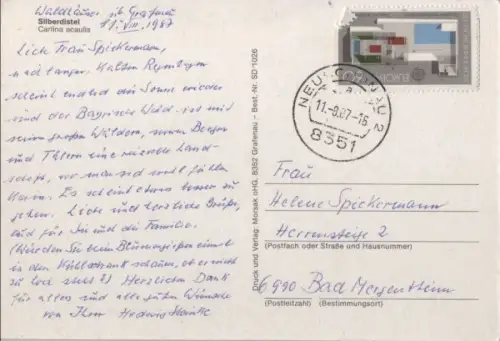 Waldhäuser üb. Grafenau
Silberdistel
Cartina acaulis
11. VIII. 1987
Liebe Frau Spickermann,
nach langen kalten Regentagen
scheint endlich die Sonne wieder
und der Bayrische Wald ist mit
seinen großen Wäldern, seinen Bergen
und Tälern eine reizvolle Land-
schaft, wo man sich wohl fühlen
kann. Es scheint etwas besser zu
gehen. Liebe und herzliche Grüße,
auch für Sie und die Familie.
(Würden Sie beim Blumengießen einmal
in den Kühlschrank schauen, ob er nicht
zu kalt steht?) Herzlichen Dank
für alles und alle guten Wünsche
von Ihrer Hedwig
Druck und Verlag: Morsak oHG, 8352 Grafenau - Best. Nr. SD-1026
NEUSCHÖNAU 2
a
11.-8.87-16
8351
Frau
Helene Spickermann
Herrensteige 2
(Postfach oder Straße und Hausnummer)
6990 Bad Mergentheim
(Postleitzahl) (Bestimmungsort)